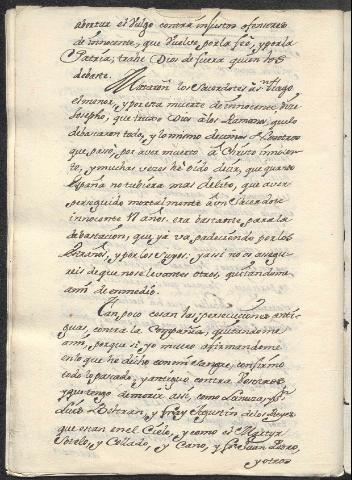 abortar el vulgo contra injustos ofensores
de innocente, que vuelve por la fe, y por la
Patria, trahe Dios de fuera quien los
debaste.
Mataron los Sacerdotes a Sn. tiago
el menor, y por esta muerte de innocente, dize
Josepho, que truxo Dios a los Romanos, que lo
debastaron todo, y lo mismo decimos
que pasò, por aver muerto à Christo innocen-
te, y muchas vezes hè oido decir, que quando
España no tubiera mas delito, que aver
perseguido mortalmente à vn Sacerdote
innocente 17 años, era bastante para la
debastacion, que ya va padeciendo por los
estraños, y por los suyos: y assi no os asegu-
reis de que no se levanten otros, quitandome
a mi de enmedio.
Tan poco cesan las persecuciones anti-
guas, contra la Compañia, quitandome
a mi, porque si yo muero afirmandome
en lo que he dicho con mi sangre, confirmo
todo lo pasado, y antiguo contra
y que tengo de morir assi, como Lanuza, y Sn.
Luis Beltran, y fray Agustin de los Reyes
que estan en el Cielo, y como el Martyr
Sotelo, y Collado, y Cano, y Fr. Juan
y otros